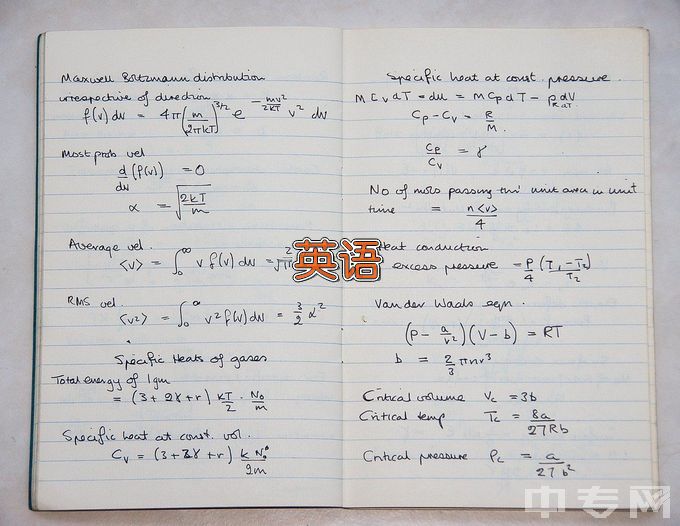 Maxwell Boltzmann distribution
irrespective of direction
f(v) dv = 4π (m/2πkT)^3/2 e^-mv²/2kT v² dv
Most prob vel
d/dv (f(v)) = 0
α = √2kT/m
Average vel.
<v> = ∫₀^∞ v f(v) dv = 2/√π
RMS vel.
<v²> = ∫₀^∞ v² f(v) dv = 3/2 α²
Specific Heats of gases
Total energy of 1gm
= (3 + 2γ + r) kT/2 . No/m
Specific heat at const. vol.
Cv = (3 + 2γ + r) k No/2m
Specific heat at const. pressure.
M Cv dT = du = M Cp dT - p dV
Cp - Cv = R/M.
Cp/Cv = γ
No of mols passing thro' unit area in unit
time = n<v>/4
Heat conduction
excess pressure = P/4 (T₁ - T₂)/T₂
Van der Waals eqn.
(P - a/v²)(V - b) = RT
b = 2/3 πnr³
Critical volume Vc = 3b
Critical temp Tc = 8a/27Rb
Critical pressure Pc = a/27b²
英语
中专网